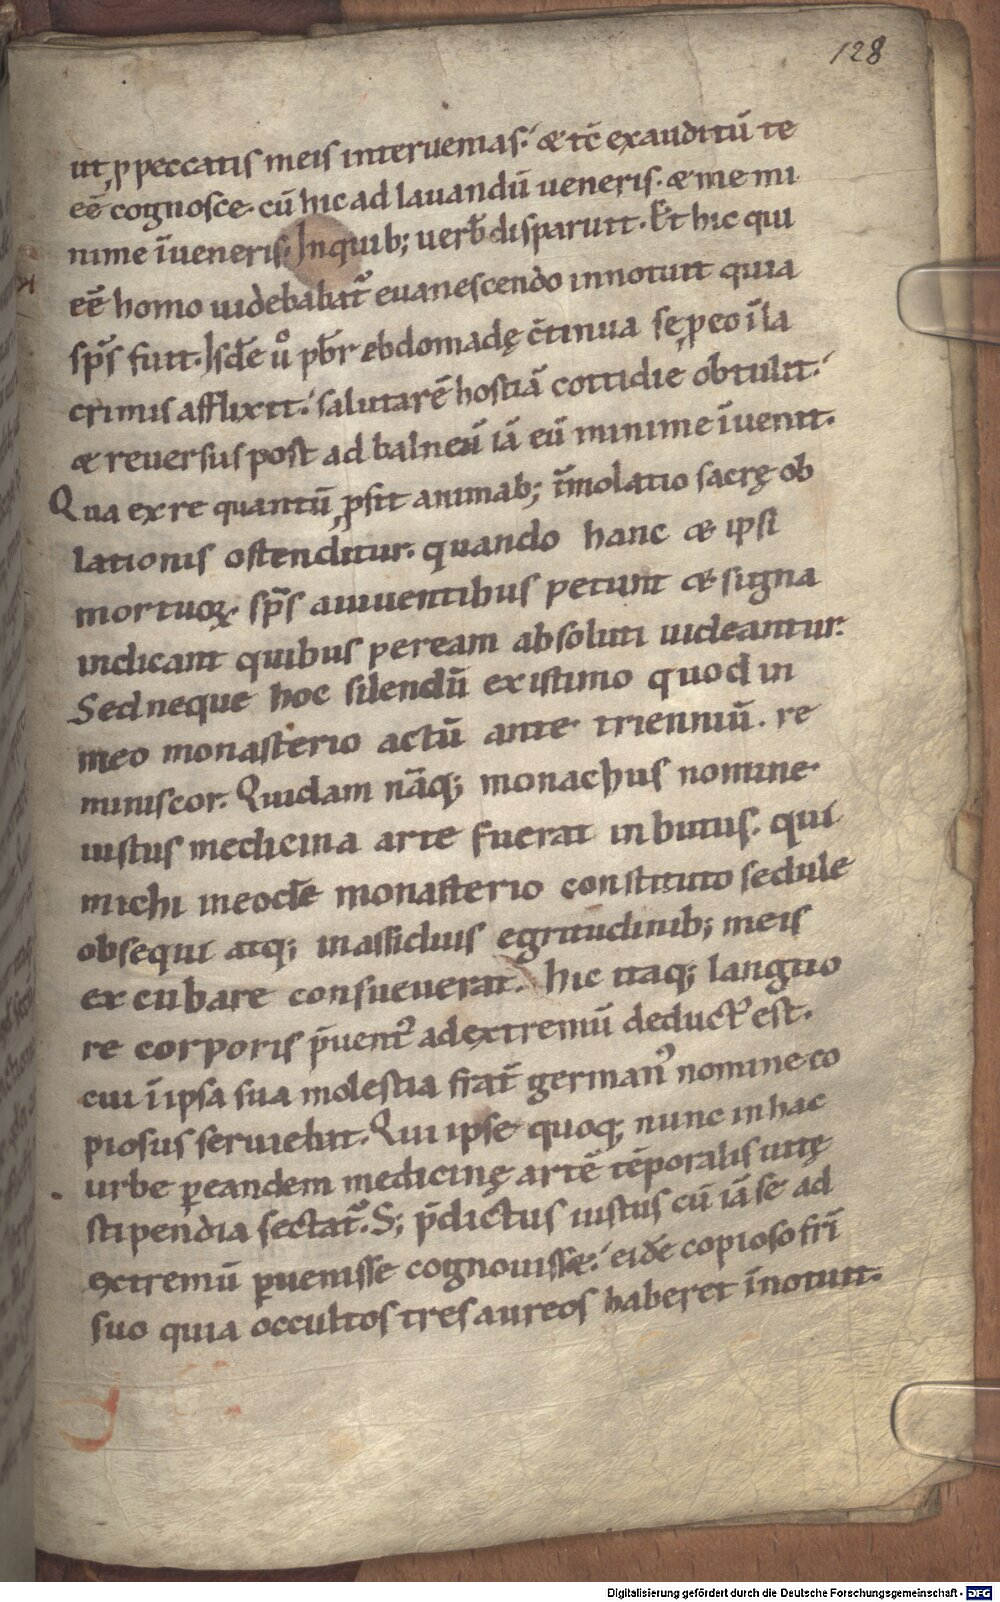 128
ut ꝓ peccatis meis interuenias. & tc̄ exauditū te
eē cognosce. cū hic ad lauandū ueneris. & me mi
nime īueneris. In quib; uerb̄ disparuit. Et hic qui
eē homo uidebabat᷑ euanescendo innotuit quia
sp̄s fuit. Isdē ůo pb̄r ebdomadę c̄tinua se ꝓ eo ī la
crimis afflixit. salutarē hostiā cottidie obtulit.
& reuersus post ad balneū iā eū minime īuenit.
Qua ex re quantū ꝓsit animab; īmolatio sacrę ob
lationis ostenditur. quando hanc & ipsi
mortuoꝝ sp̄s a uiuentibus petunt & signa
indicant quibus per eam absoluti uideantur.
Sed neque hoc silendū existimo quod in
meo monasterio actū ante trienniū. re
miniscor. Quidam nāq; monachus nomine
iustus medicina arte fuerat inbutus. qui
michi in eodē monasterio constituto sedule
obsequi atq; in assiduis egritudinib; meis
excubare consueuerat. hic itaq; languo
re corporis p̄uent᷒ ad extremū deduct᷒ est.
cui ī ipsa sua molestia frat̄ german᷒ nomine co
piosus seruiebat. Qui ipse quoq; nunc in hac
urbe ꝑ eandem medicinę artē tēporalis uitę
stipendia sectat᷑. S; p̄dictus iustus cū iā se ad
extremū ꝑuenisse cognouiss&. eidē copioso fr̄i
suo quia occultos tres aureos haberet īnotuit.
Digitalisierung gefördert durch die Deutsche Forschungsgemeinschaft - DFG